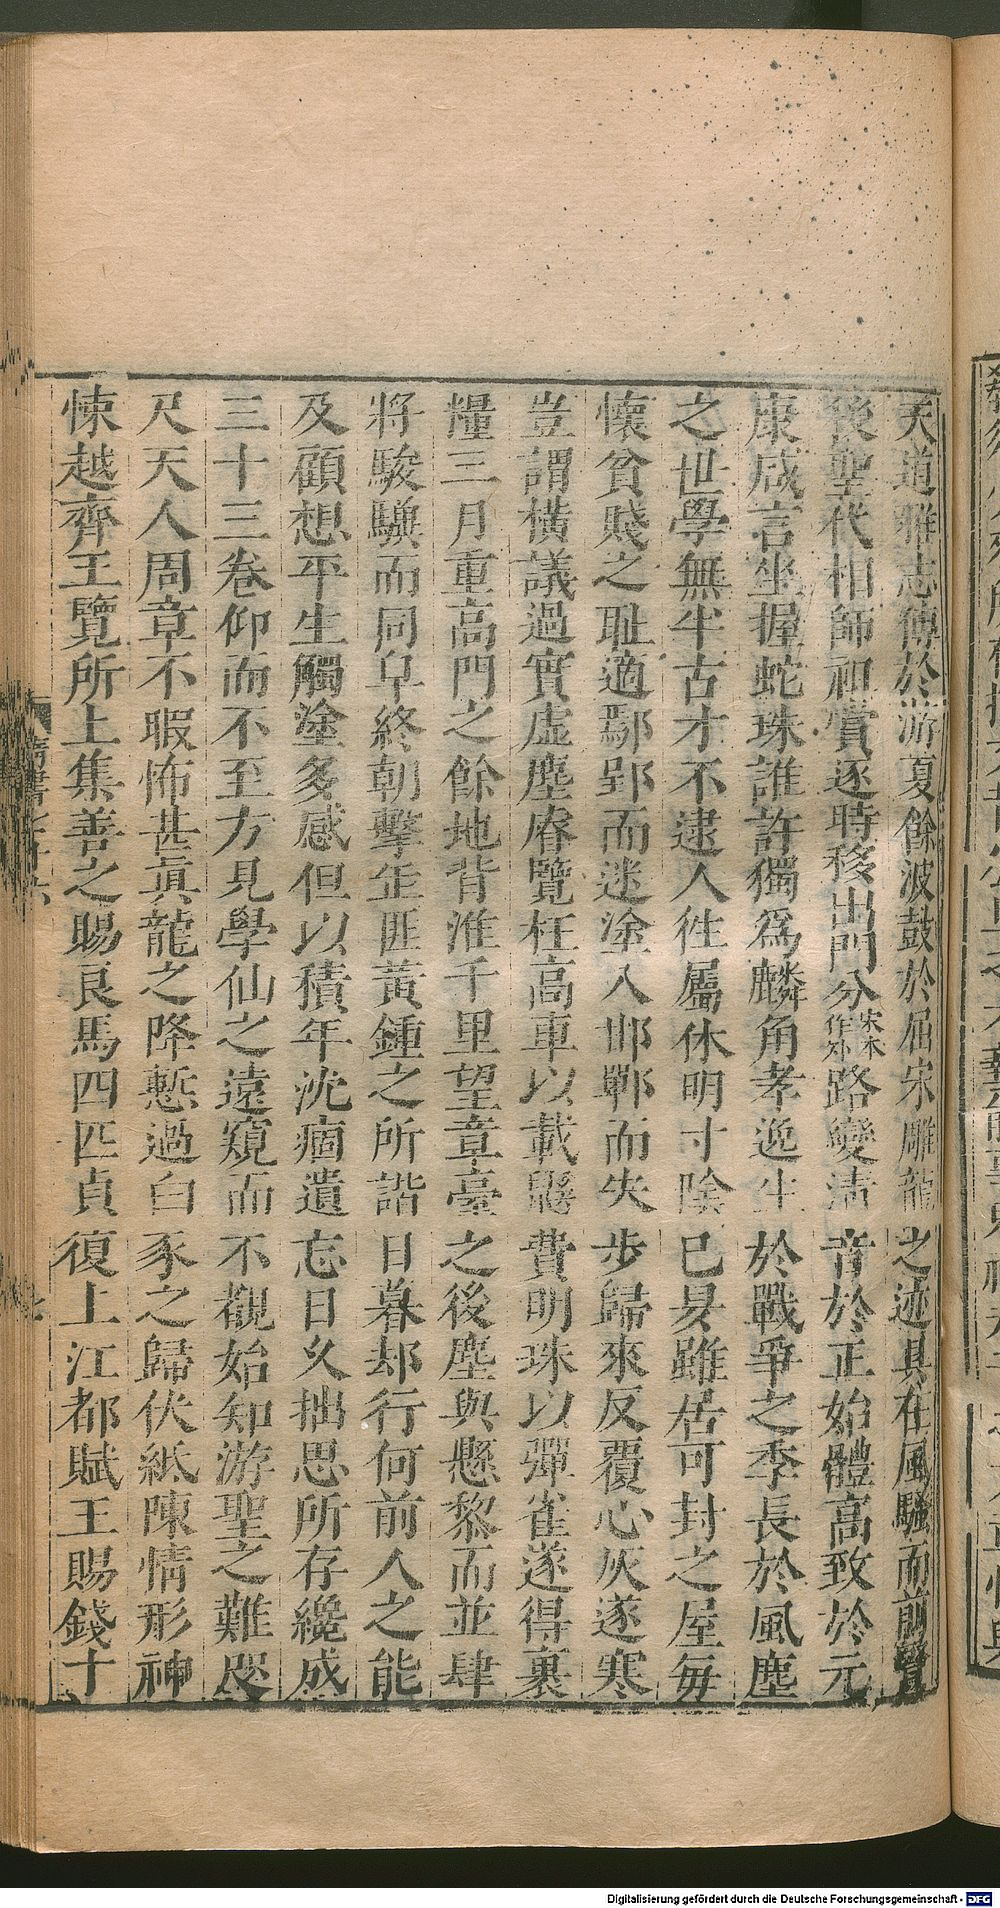 天道雅志傳於游夏餘波鼓於屈宋雕龍之迹具在風騷而前賢
後聖代相師祖賞逐時移出門分宋本作外路變清音於正始體高致於元
康咸言坐握蛇珠誰許獨爲麟角孝逸生於戰爭之季長於風塵
之世學無半古才不逮人徃屬休明寸陰已昃雖居可封之屋每
懷貧賤之恥適鄢郢而迷塗入邯鄲而失步歸來反覆心灰遂寒
豈謂橫議過實虛塵睿覽枉高車以載鼷費明珠以彈雀遂得裹
糧三月重高門之餘地背淮千里望章臺之後塵與懸黎而並肆
將駿驥而同皁終朝擊缶匪黃鍾之所諧日暮却行何前人之能
及顧想平生觸塗多感但以積年沈痼遺忘日久拙思所存纔成
三十三卷仰而不至方見學仙之遠窺而不覩始知游聖之難咫
尺天人周章不暇怖甚眞龍之降慙過白豕之歸伏紙陳情形神
悚越齊王覽所上集善之賜良馬四匹貞復上江都賦王賜錢十
隋書
Digitalisierung gefördert durch die Deutsche Forschungsgemeinschaft - DFG